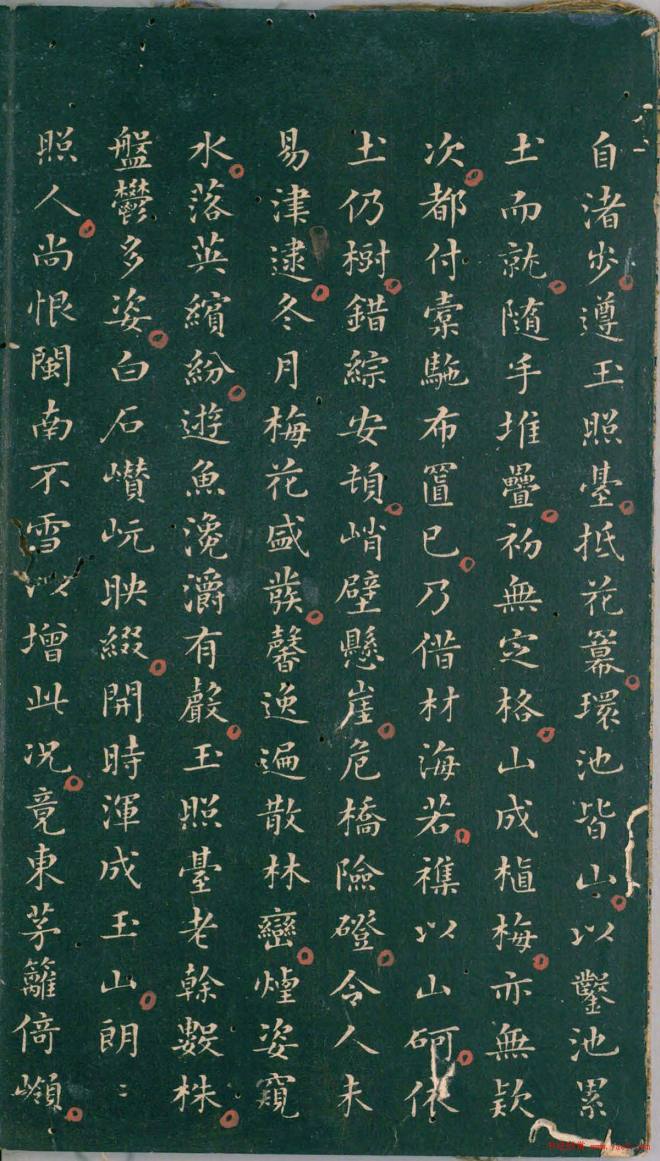 自渚步遵玉照臺抵花冪環池皆山以鑿池累
土而就隨手堆疊初無定格山成植梅亦無欵
次都付槖駞布置已乃借材海若襍以山砢依
土仍樹錯綜安頓峭壁懸崖危橋險磴令人未
易津逮冬月梅花盛發馨逸遍散林巒煙姿窺
水落英繽紛遊魚瀺灂有聲玉照臺老榦數株
盤鬱多姿白石巑岏映綴開時渾成玉山朗〻
照人尚恨閩南不雪以增此况竟東茅籬倚嶺